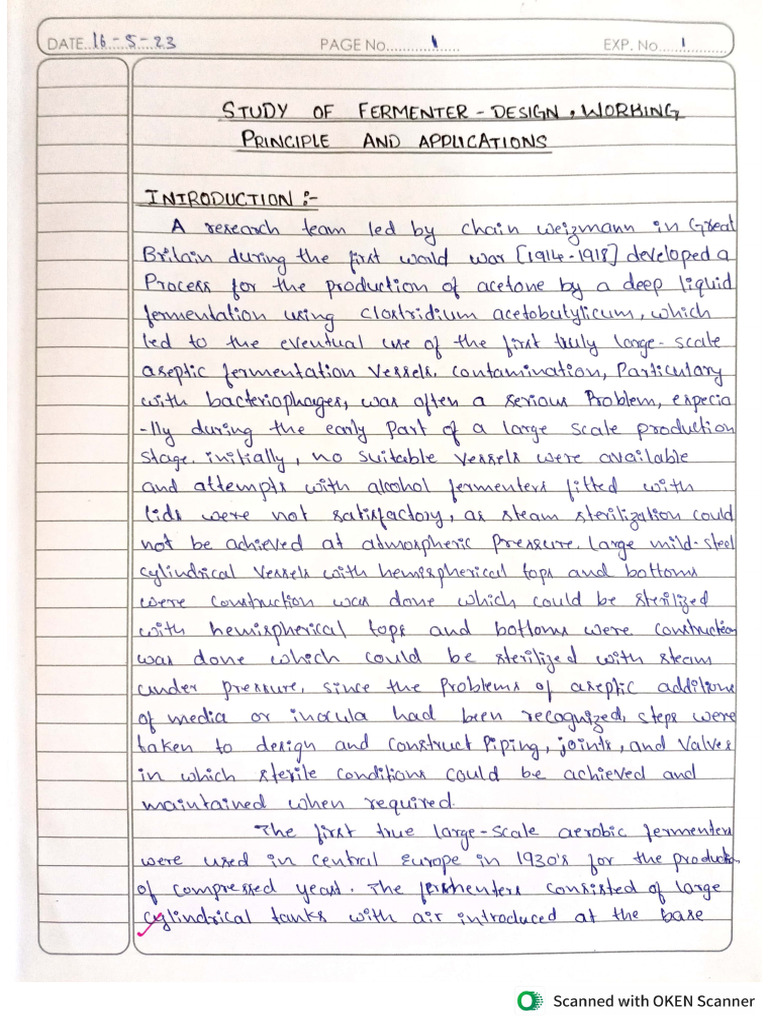 DATE 16-5-23 PAGE No. 1 EXP. No. 1
STUDY OF FERMENTER - DESIGN, WORKING
PRINCIPLE AND APPLICATIONS
INTRODUCTION :-
A research team led by chain weizmann in Great
Britain during the first world war [1914-1918] developed a
Process for the production of acetone by a deep liquid
fermentation using clostridium acetobutylicum, which
led to the eventual use of the first truly large-scale
aseptic fermentation vessels. contamination, Particulary
with bacteriophages, was often a serious Problem, especia
-lly during the early Part of a large scale production
stage. initially, no suitable vessels were available
and attempts with alcohol fermenters fitted with
lids were not satisfactory, as steam sterilization could
not be achieved at atmospheric pressure. large mild-steel
cylindrical vessels with hemispherical tops and bottoms
were construction was done which could be sterilized
with hemispherical tops and bottoms were construction
was done which could be sterilized with steam
under pressure, since the problems of aseptic additions
of media or inocula had been recognized, steps were
taken to design and construct piping, joints, and valves
in which sterile conditions could be achieved and
maintained when required.
The first true large-scale aerobic fermenters
were used in central Europe in 1930's for the production
of compressed yeast. The fermenters consisted of large
cylindrical tanks with air introduced at the base
Scanned with OKEN Scanner